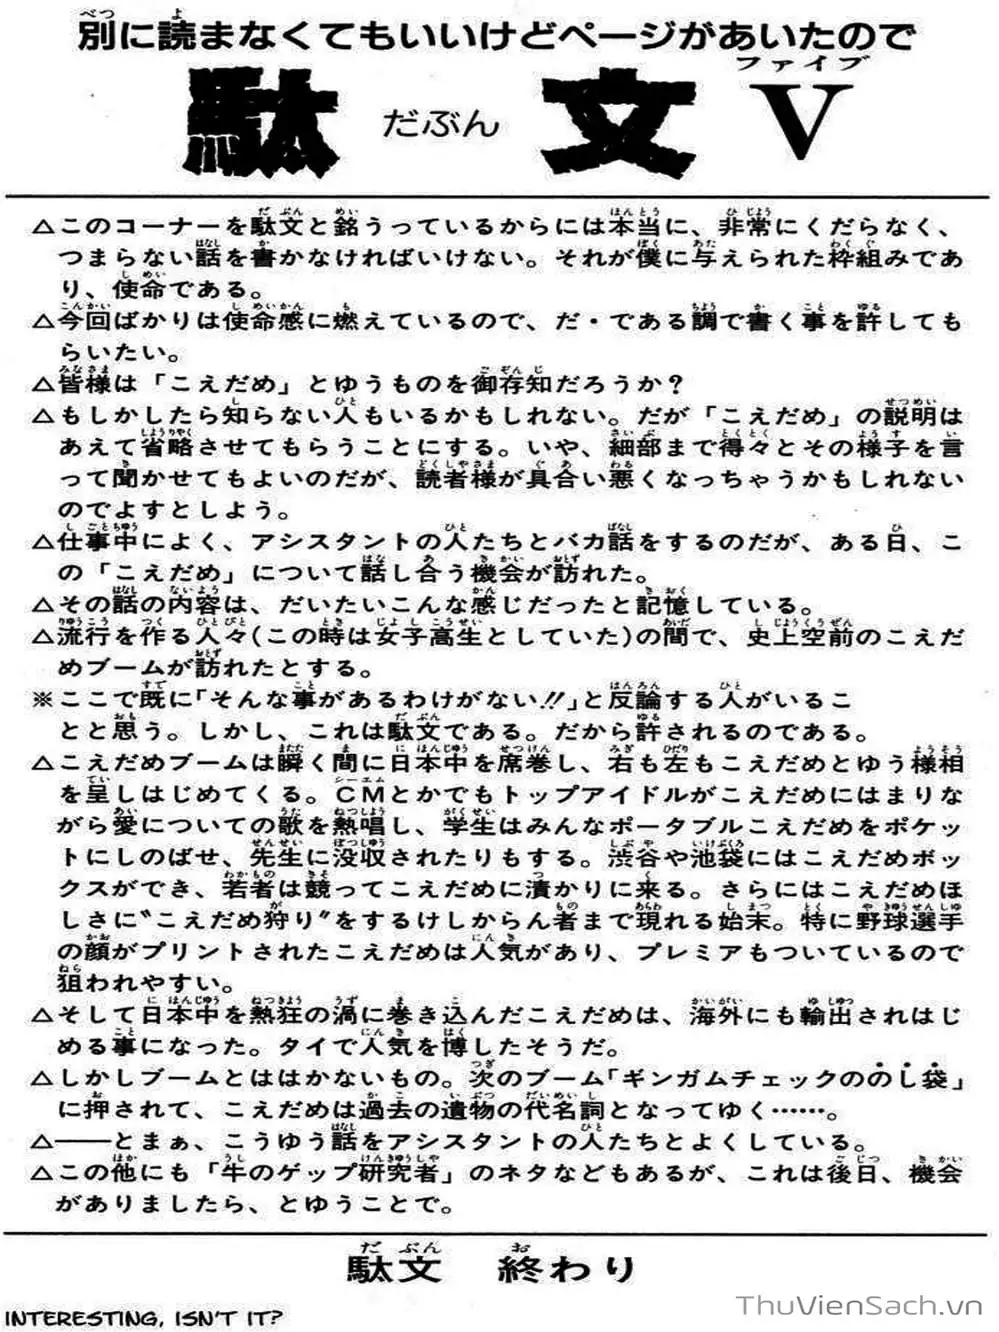 別に読まなくてもいいけどページがあいたので
駄文 だぶん V
ファイブ
△このコーナーを駄文と銘うっているからには本当に、非常にくだらなく、
つまらない話を書かなければいけない。それが僕に与えられた枠組みであ
り、使命である。
△今回ばかりは使命感に燃えているので、だ・である調で書く事を許しても
らいたい。
△皆様は「こえだめ」とゆうものを御存知だろうか?
△もしかしたら知らない人もいるかもしれない。だが「こえだめ」の説明は
あえて省略させてもらうことにする。いや、細部まで得々とその様子を言
って聞かせてもよいのだが、読者様が具合い悪くなっちゃうかもしれない
のでよすとしよう。
△仕事中によく、アシスタントの人たちとバカ話をするのだが、ある日、こ
の「こえだめ」について話し合う機会が訪れた。
△その話の内容は、だいたいこんな感じだったと記憶している。
△流行を作る人々(この時は女子高生としていた)の間で、史上空前のこえだ
めブームが訪れたとする。
※ここで既に「そんな事があるわけがない!!」と反論する人がいるこ
とと思う。しかし、これは駄文である。だから許されるのである。
△こえだめブームは瞬く間に日本中を席巻し、右も左もこえだめとゆう様相
を呈しはじめてくる。CMとかでもトップアイドルがこえだめにはまりな
がら愛についての歌を熱唱し、学生はみんなポータブルこえだめをポケッ
トにしのばせ、先生に没収されたりもする。渋谷や池袋にはこえだめボッ
クスができ、若者は競ってこえだめに漬かりに来る。さらにはこえだめほ
しさに〝こえだめ狩り〟をするけしからん者まで現れる始末。特に野球選手
の顔がプリントされたこえだめは人気があり、プレミアもついているので
狙われやすい。
△そして日本中を熱狂の渦に巻き込んだこえだめは、海外にも輸出されはじ
める事になった。タイで人気を博したそうだ。
△しかしブームとははかないもの。次のブーム「ギンガムチェックののし袋」
に押されて、こえだめは過去の遺物の代名詞となってゆく……。
△――とまぁ、こうゆう話をアシスタントの人たちとよくしている。
△この他にも「牛のゲップ研究者」のネタなどもあるが、これは後日、機会
がありましたら、とゆうことで。
駄文 終わり
INTERESTING, ISN'T IT?
ThuVienSach.vn